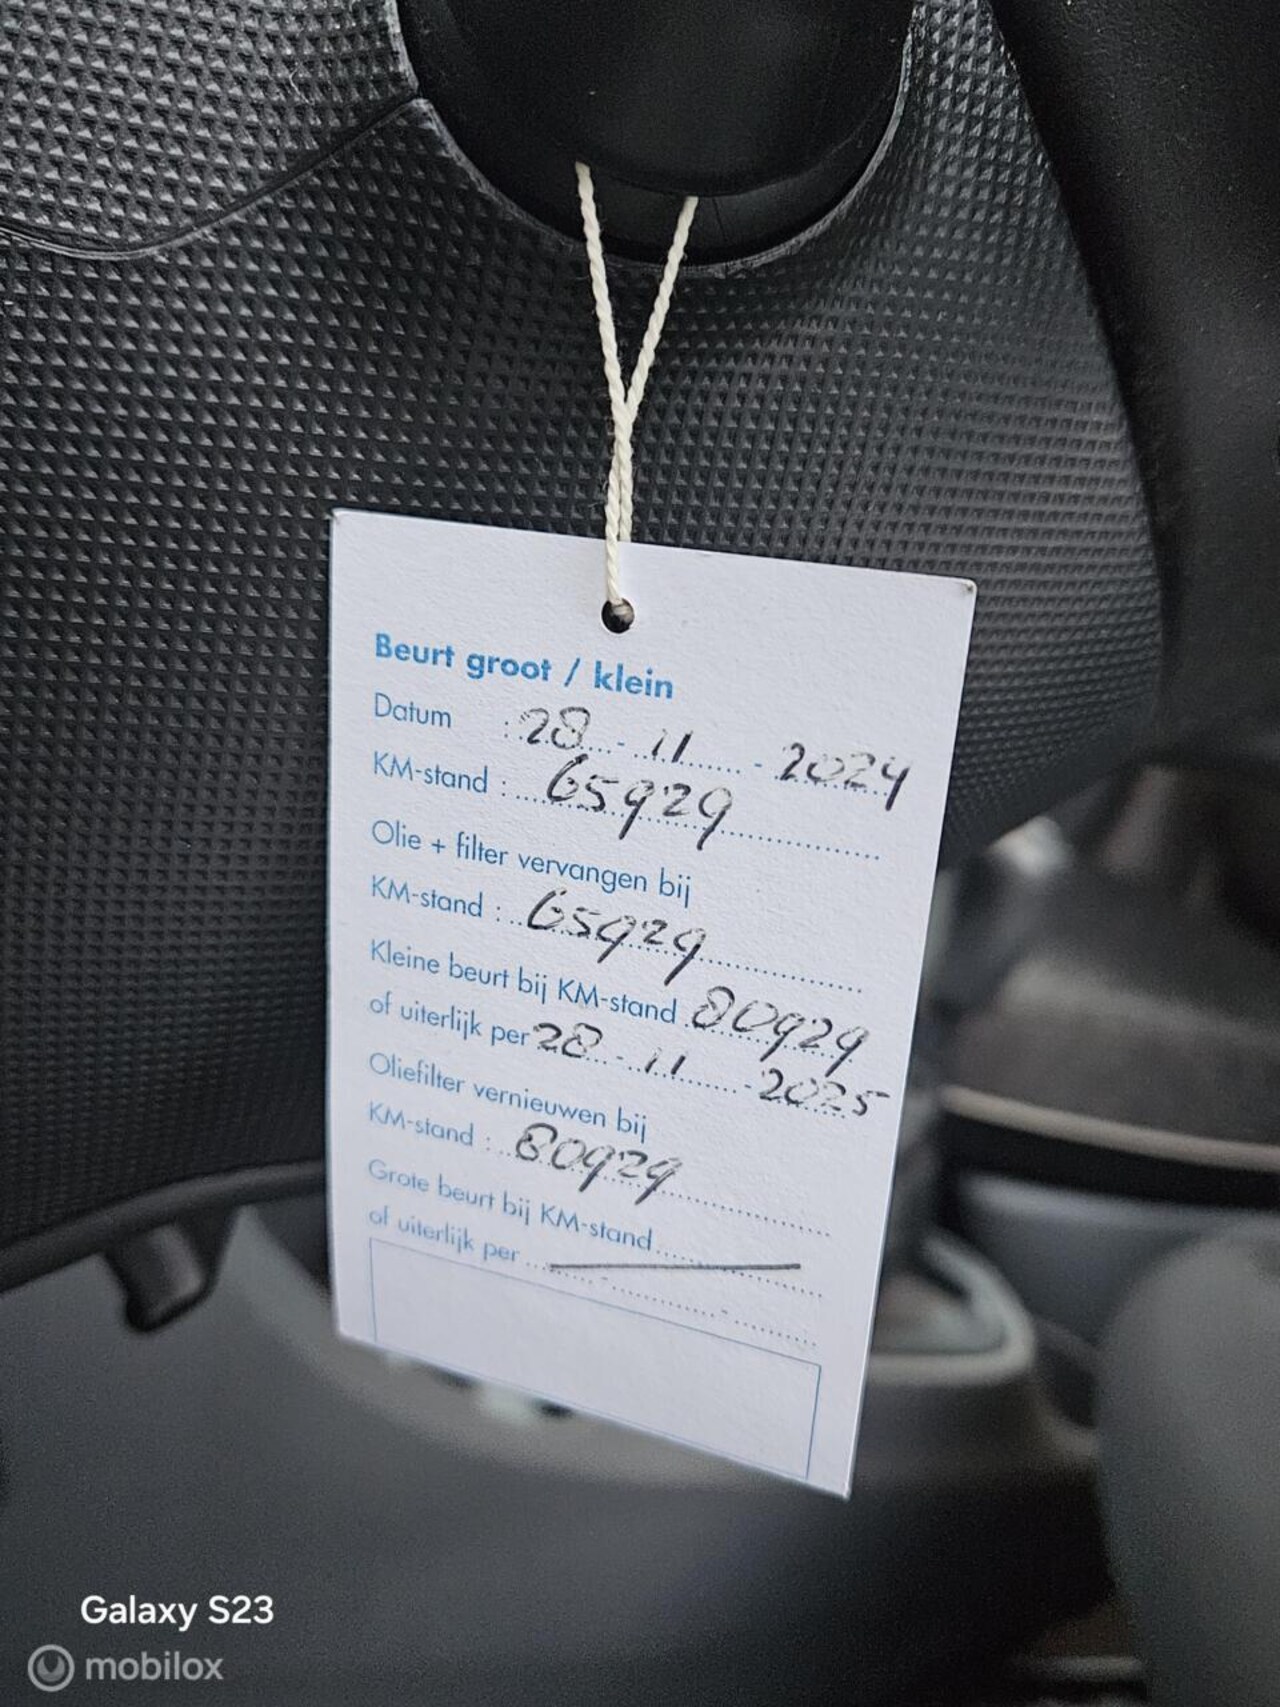 Beurt groot / klein
Datum : 28 - 11 - 2024
KM-stand : 65929
Olie + filter vervangen bij
KM-stand : 65929
Kleine beurt bij KM-stand 80929
of uiterlijk per 28 - 11 - 2025
Oliefilter vernieuwen bij
KM-stand : 80929
Grote beurt bij KM-stand
of uiterlijk per - -
Galaxy S23
mobilox